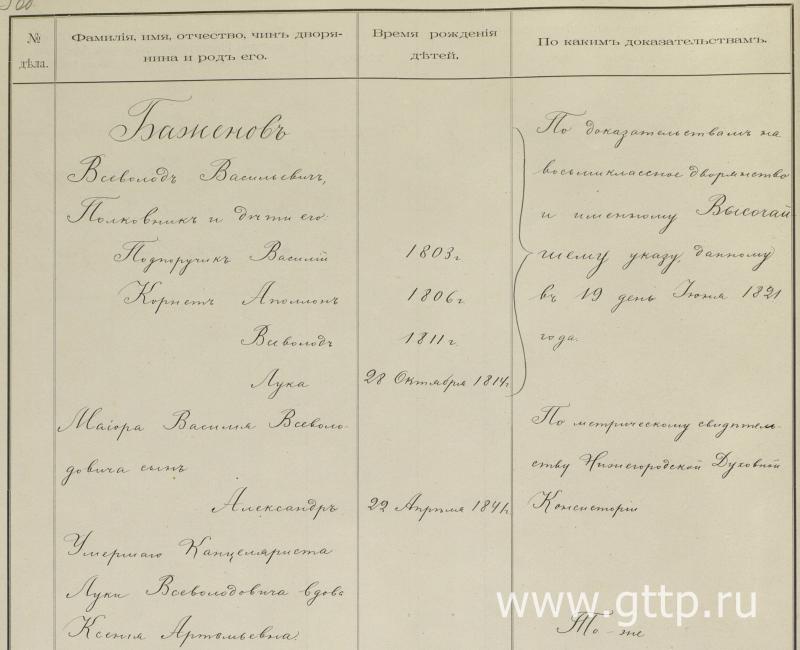 № дѣла.
Фамилія, имя, отчество, чинъ дворя-
нина и родъ его.
Время рожденія
дѣтей.
По какимъ доказательствамъ.
Баженовъ
Всеволодъ Васильевичъ,
Полковникъ и дѣти его:
Подпоручикъ Василій 1803 г.
Корнетъ Аполлонъ 1806 г.
Всеволодъ 1811 г.
Лука 28 Октября 1814 г.
По доказательствамъ на
восьмиклассное дворянство
и именному Высочай-
шему указу, данному
въ 19 день Іюня 1821
года.
Маіора Василія Всеволо-
довича сынъ
Александръ 22 Апрѣля 1841 г.
По метрическому свидѣтель-
ству Нижегородской Духовной
Консисторіи
Умершаго Канцеляриста
Луки Всеволодовича вдова
Ксенія Артемьевна.
То-же
www.gttp.ru